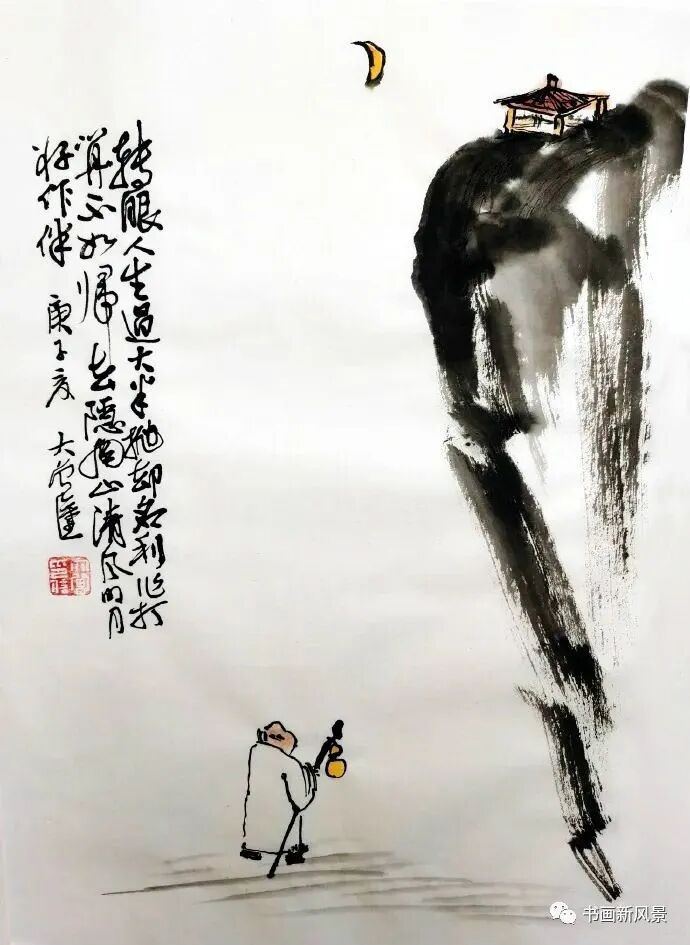 转眼人生过大半抛却名利作打
算不如归去隐南山清风明月
好作伴 庚子夏
书画新风景